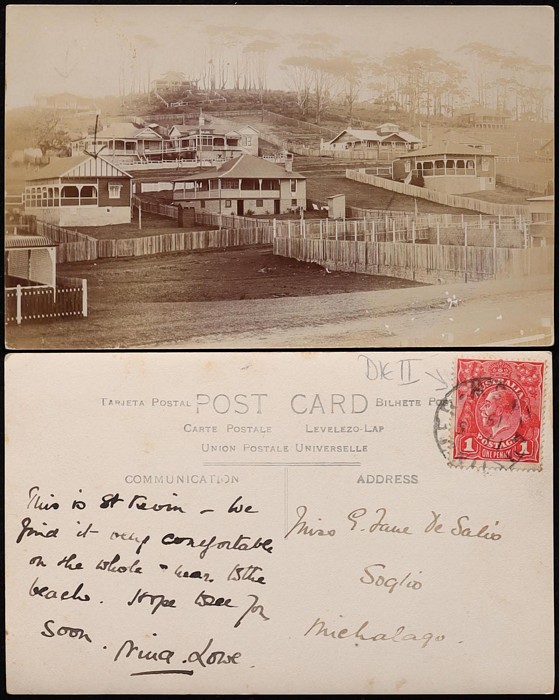 DIE II
TARJETA POSTAL POST CARD BILHETE POS
CARTE POSTALE LEVELEZO-LAP
UNION POSTALE UNIVERSELLE
COMMUNICATION
ADDRESS
AUSTRALIA
1 POSTAGE 1
ONE PENNY
This is St Kevin – We
find it very comfortable
on the whole – near to the
beach. Hope to see you
soon.
Nina Lowe.
Miss E. Jane De Salis
Soglio
Michalago.